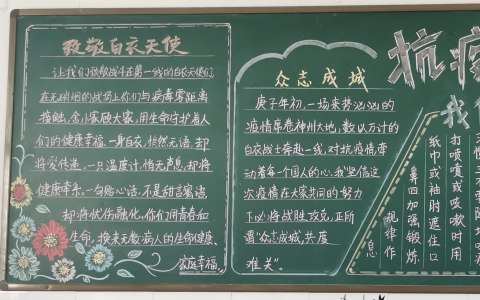 致敬白衣天使
让我们致敬战斗在第一线的白衣天使们
在无硝烟的战场上你们与病毒零距离
接触,舍小家顾大家,用生命守护着人
们的健康幸福。一身白衣,悄然无语,却
将爱传递。一只温度计,悄无声息,却将
健康牵系。一句贴心话,不是甜言蜜语,
却将忧伤融化,你们用青春和
生命,换来无数病人的生命健康、
家庭幸福。
众志成城
庚子年初,一场来势汹汹的
疫情席卷神州大地,数以万计的
白衣战士奔赴一线,对抗疫情,牵
动着每个国人的心。我坚信这
次疫情在大家共同的努力
下必将战胜攻克,正所
谓"众志成城,共度
难关"。
抗疫
我们
打喷嚏或咳嗽时用
纸巾或袖肘遮住口
鼻
四加强锻炼
规律作
息